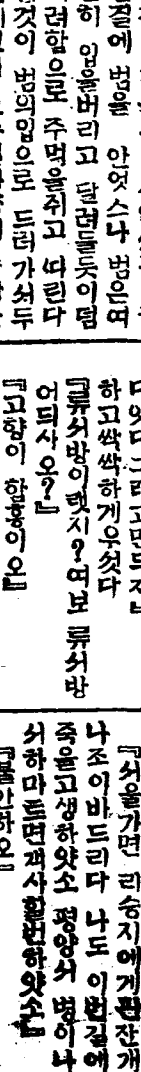 결에 범을 안엇스나 범은여
히 입을버리고 달려들듯이덤
려함으로 주먹을쥐고 따린다
것이 범의입으로 드러가서두
하고싹싹하게우섯다
『류서방이랫지? 여보 류서방
어듸사오?』
『고향이 함흥이오』
『서울가면 리승지에게 잔개
나조이바드리다 나도 이번길에
죽을고생하얏소 평양서 병이나
서하마트면객사할번하얏소』
『불안하오』